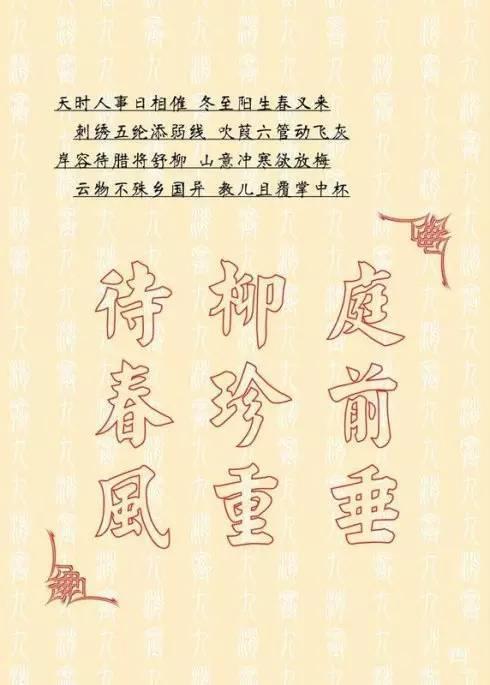 天时人事日相催 冬至阳生春又来
刺绣五纶添弱线 吹葭六管动飞灰
岸容待腊将舒柳 山意冲寒欲放梅
云物不殊乡国异 教儿且覆掌中杯
庭前垂
柳珍重
待春風